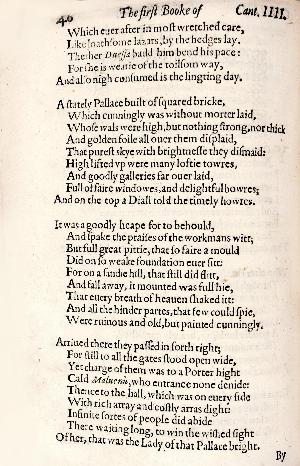 40 The first Booke of Cant. IIII.
Which euer after in most wretched case,
Like loathsome lazars, by the hedges lay.
Thether Duessa badd him bend his pace:
For she is wearie of the toilsom way,
And also nigh consumed is the lingring day.
A stately Pallace built of squared bricke,
Which cunningly was without morter laid,
Whose wals were high, but nothing strong, nor thick
And golden foile all ouer them displaid,
That purest skye with brightnesse they dismaid:
High lifted vp were many loftie towres,
And goodly galleries far ouer laid,
Full of faire windowes, and delightful bowres;
And on the top a Diall told the timely howres.
It was a goodly heape for to behould,
And spake the praises of the workmans witt;
But full great pittie, that so faire a mould
Did on so weake foundation euer sitt:
For on a sandie hill, that still did flitt,
And fall away, it mounted was full hie,
That euery breath of heauen shaked itt:
And all the hinder partes, that few could spie,
Were ruinous and old, but painted cunningly.
Arriued there they passed in forth right;
For still to all the gates stood open wide,
Yet charge of them was to a Porter hight
Cald Maluenù, who entrance none denide:
Thence to the hall, which was on euery side
With rich array and costly arras dight:
Infinite sortes of people did abide
There waiting long, to win the wished sight
Of her, that was the Lady of that Pallace bright.
By